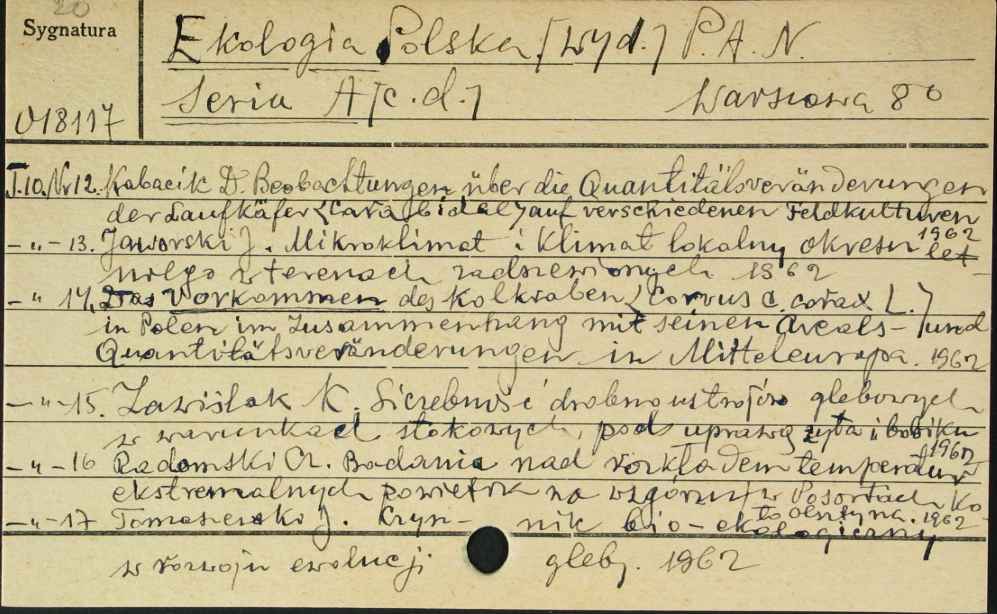 20
Sygnatura
Ekologia Polska [wyd.] P.A.N.
Seria A [c.d.]
Warszawa 8°
U18117
T.10. Nr 12. Kabacik D. Beobachtungen über die Quantitätsveränderungen
der Laufkäfer <Carabidae> auf verschiedenen Feldkulturen
1962
-"- 13. Jaworski J. Mikroklimat i klimat lokalny okresu let
niego w terenach zadrzewionych 1962
-"- 14. Das Vorkommen des Kolkraben <Corvus c. corax L.>
in Polen im Zusammenhang mit seinen Areals- und
Quantitätsveränderungen in Mitteleuropa. 1962
-"- 15. Zawiślak K. Liczebność drobnoustrojów glebowych
w warunkach stokowych, pod uprawą żyta i bobiku
1962
-"- 16 Radomski Cz. Badania nad rozkładem temperatur
ekstremalnych powietrza na wzgórzu w Posortach ko-
ło Olsztyna. 1962
-"- 17 Tomaszewski J. Czyn- nik bio-ekologiczny
w rozwoju ewolucji gleby. 1962